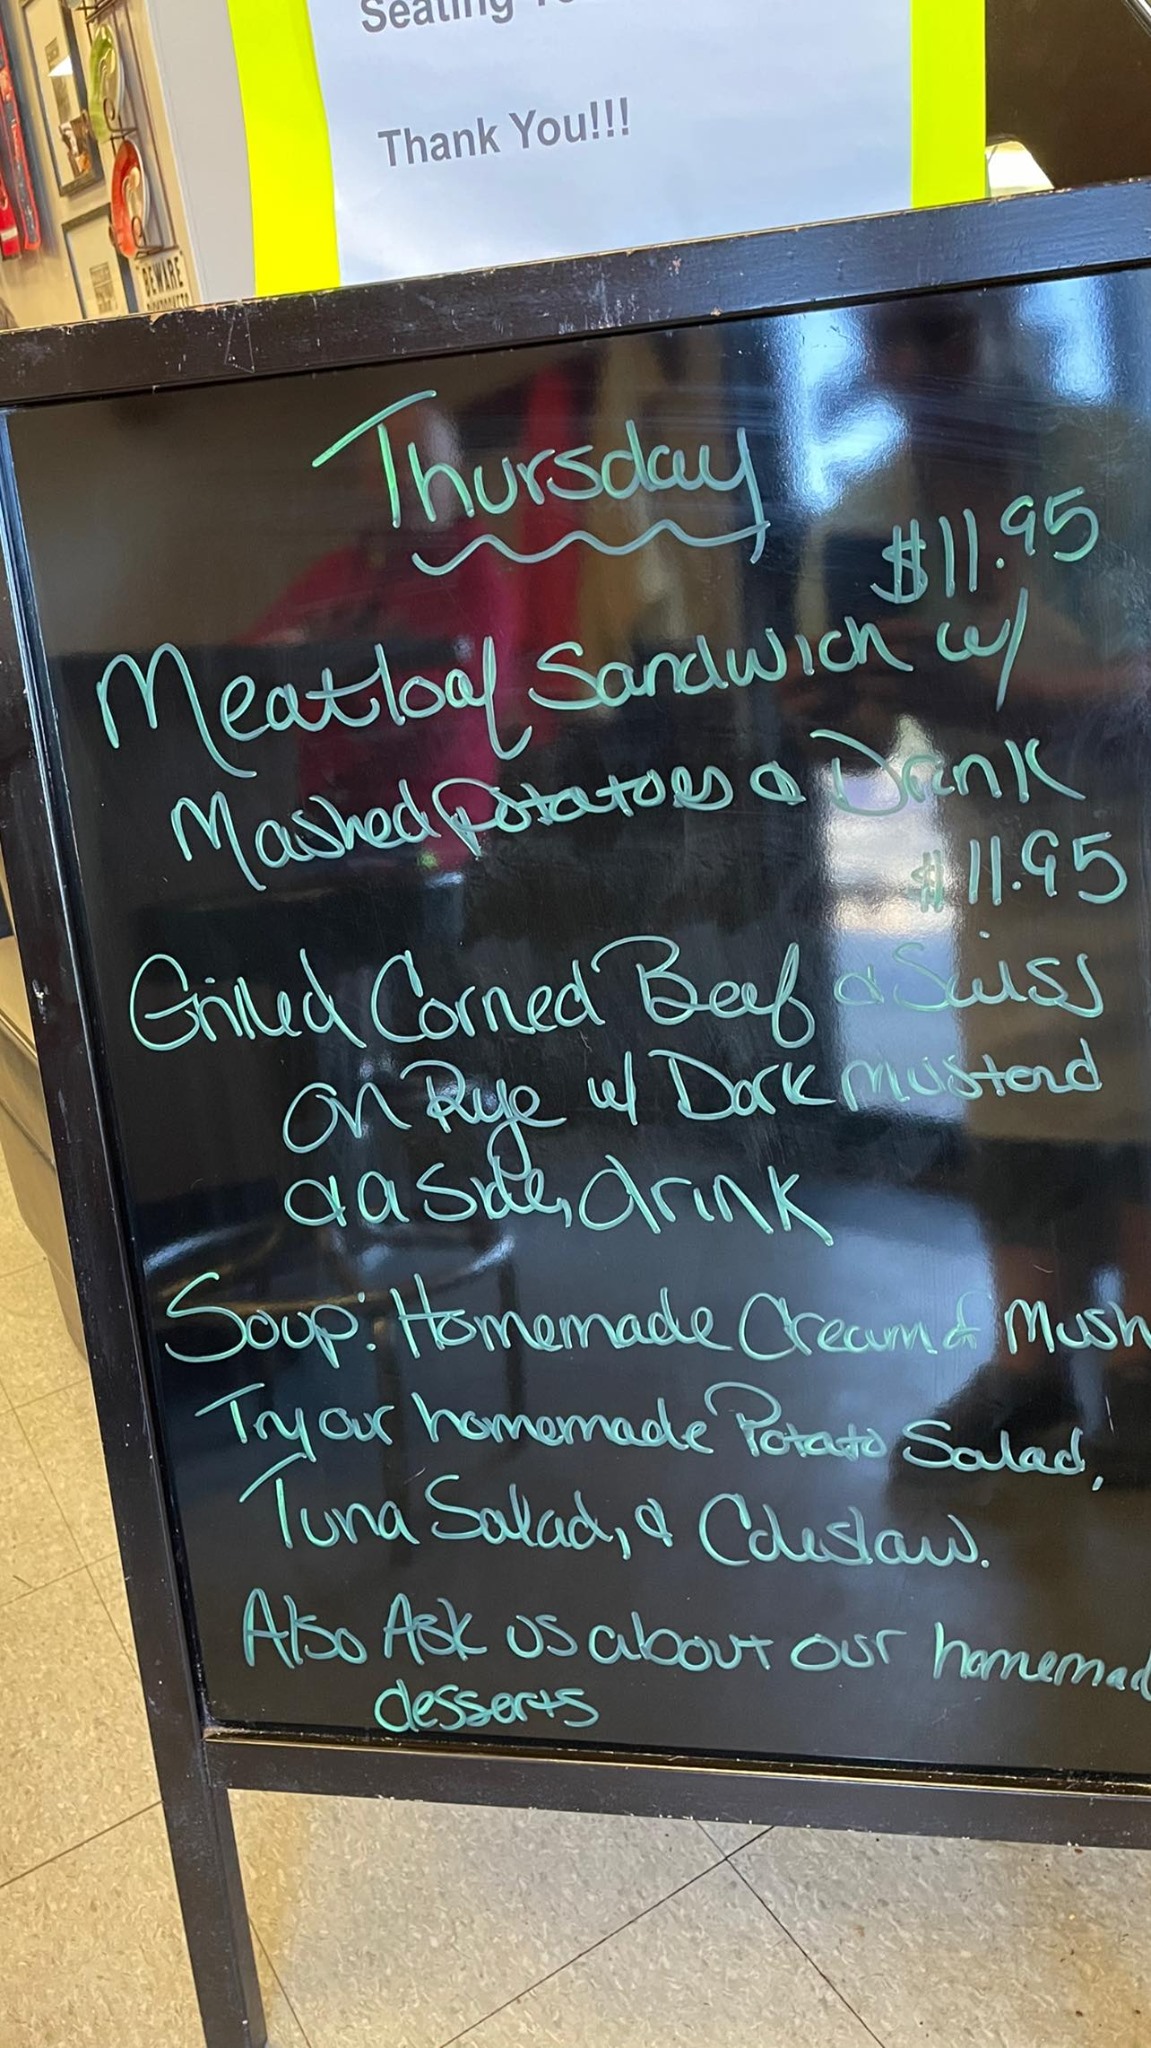 Seating
Thank You!!!
BEWARE
PICKPOCKETS
Thursday
$11.95
Meatloaf Sandwich w/
Mashed Potatoes & Drink
$11.95
Grilled Corned Beef & Swiss
on Rye w/ Dark Mustard
& a Side, drink
Soup: Homemade Cream of Mush
Try our homemade Potato Salad,
Tuna Salad, & Coleslaw.
Also Ask us about our homemad
desserts